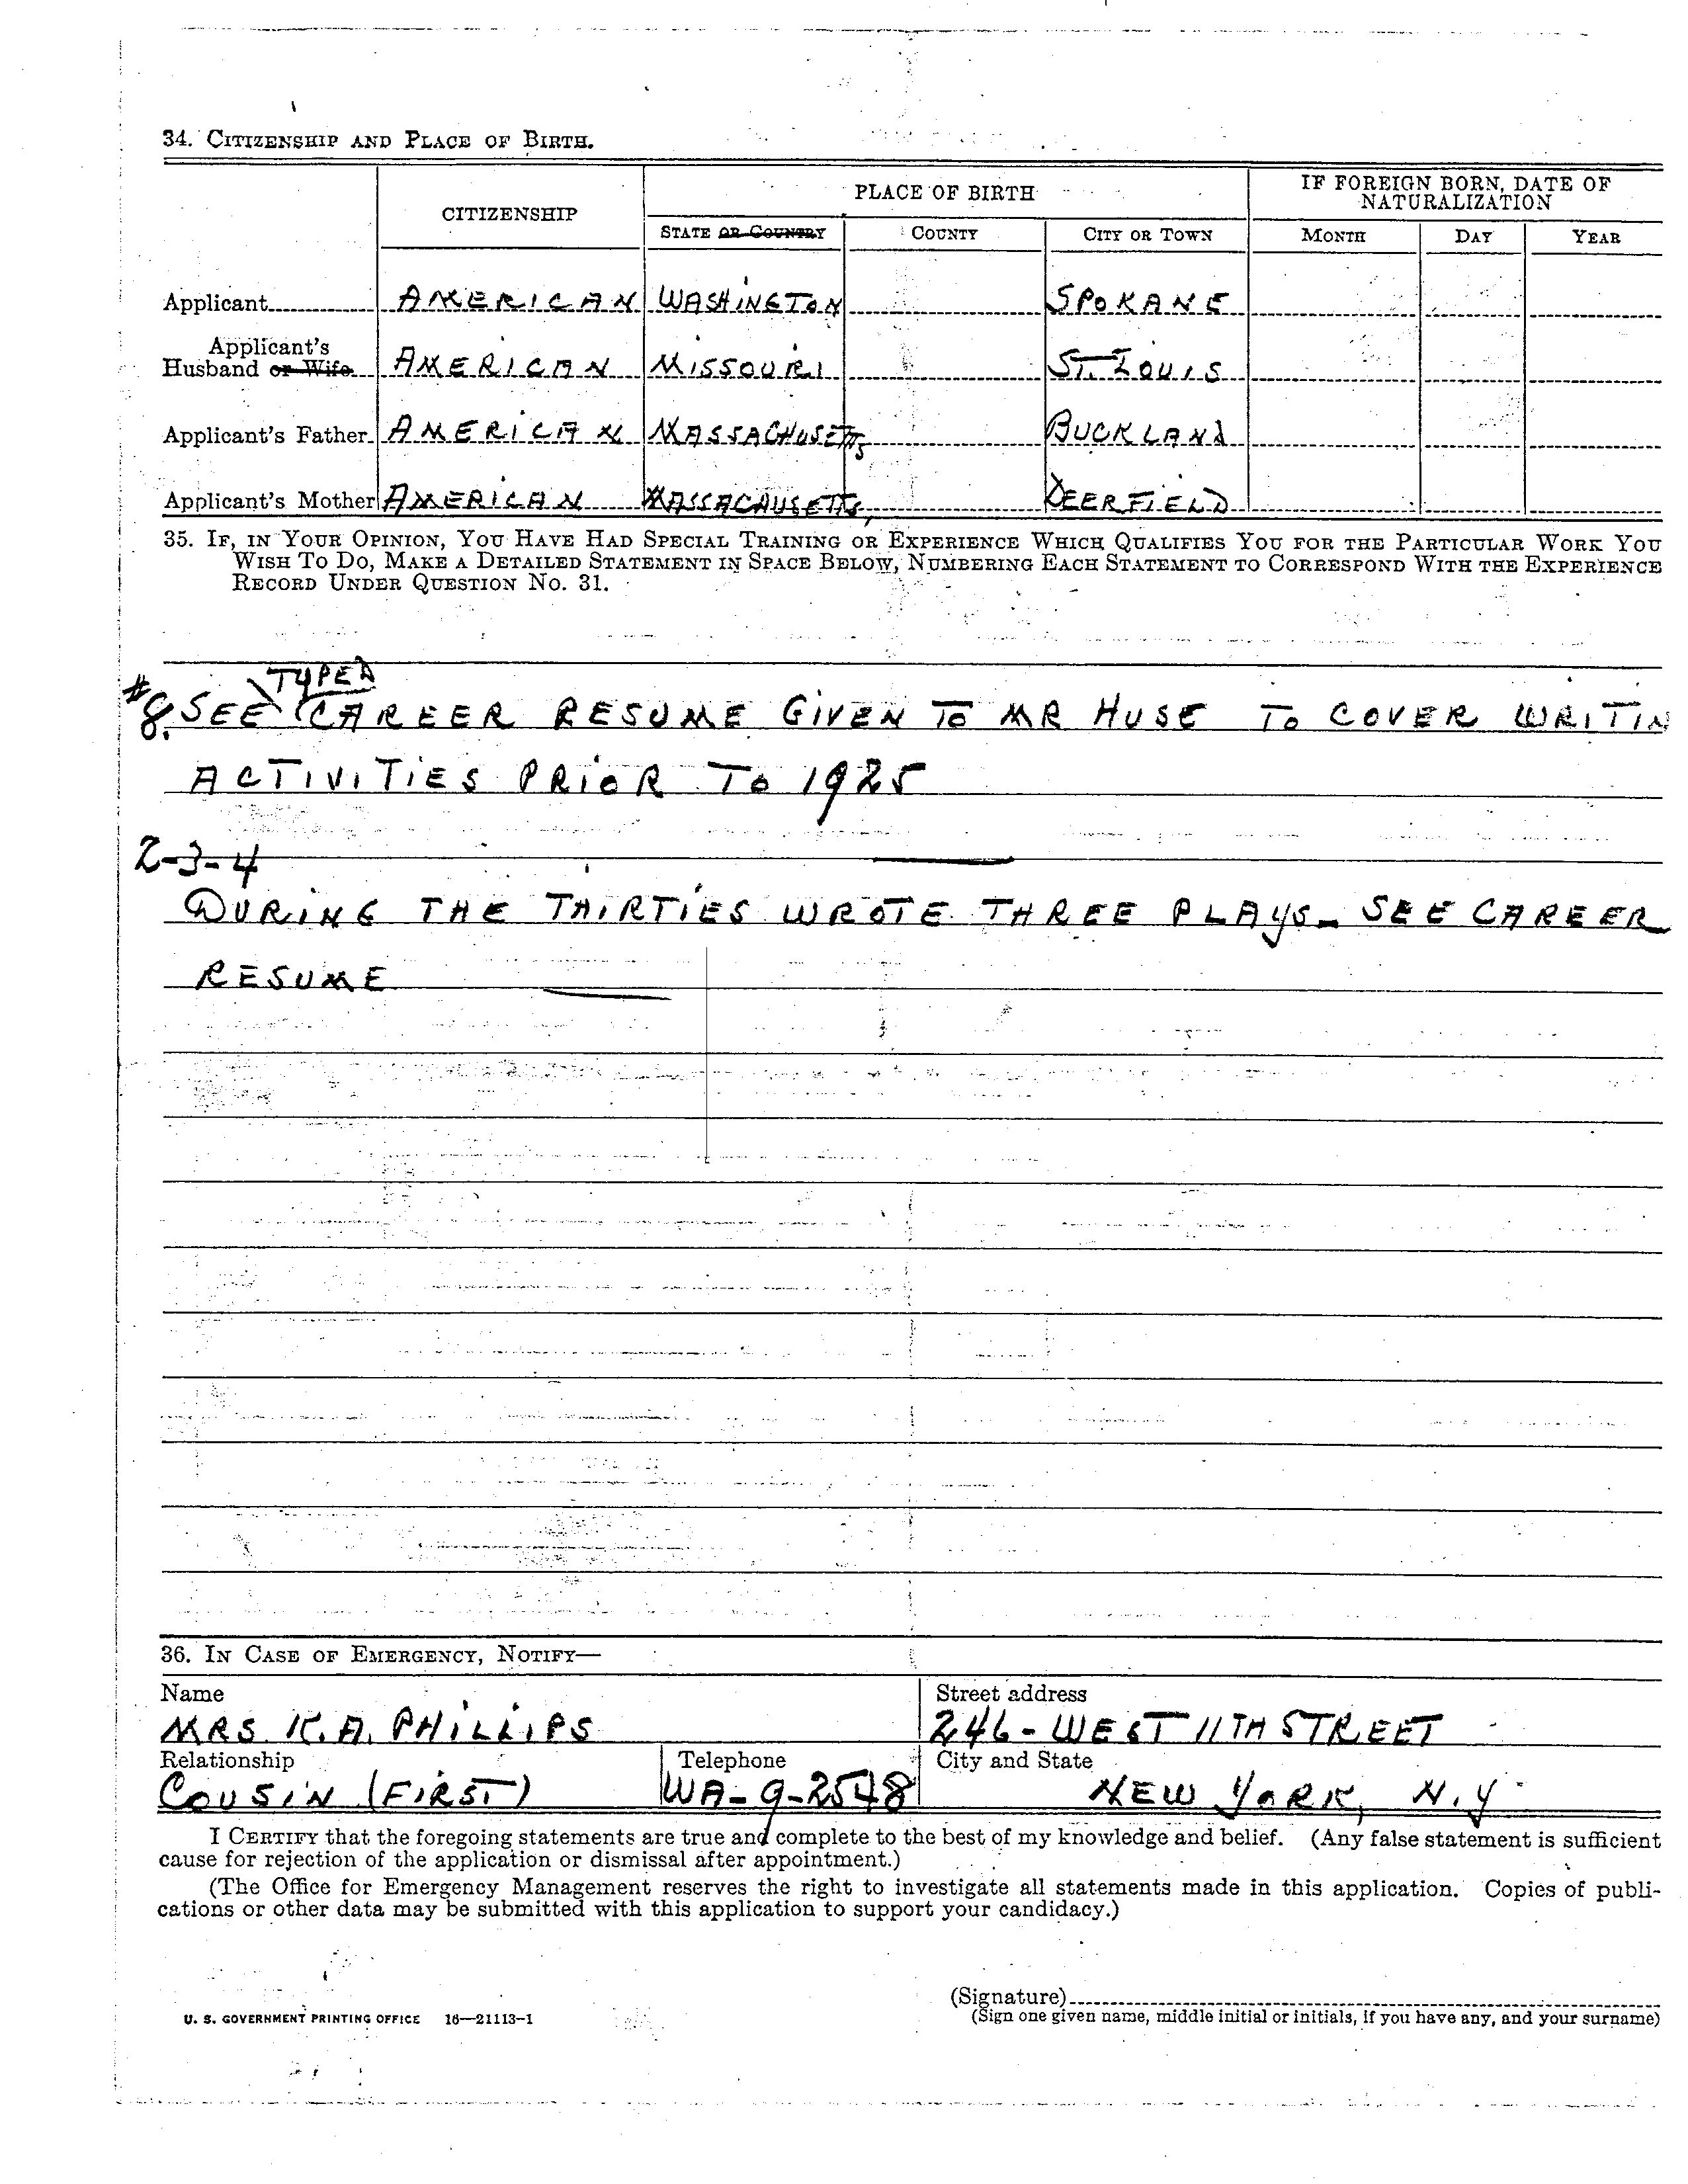 34. CITIZENSHIP AND PLACE OF BIRTH.
CITIZENSHIP
PLACE OF BIRTH
IF FOREIGN BORN, DATE OF
NATURALIZATION
STATE OR COUNTRY
COUNTY
CITY OR TOWN
MONTH
DAY
YEAR
Applicant AMERICAN WASHINGTON SPOKANE
Applicant's
Husband or Wife AMERICAN MISSOURI ST. LOUIS
Applicant's Father AMERICAN MASSACHUSETTS BUCKLAND
Applicant's Mother AMERICAN MASSACHUSETTS, DEERFIELD
35. IF, IN YOUR OPINION, YOU HAVE HAD SPECIAL TRAINING OR EXPERIENCE WHICH QUALIFIES YOU FOR THE PARTICULAR WORK YOU
WISH TO DO, MAKE A DETAILED STATEMENT IN SPACE BELOW, NUMBERING EACH STATEMENT TO CORRESPOND WITH THE EXPERIENCE
RECORD UNDER QUESTION NO. 31.
TYPED
#8. SEE CAREER RESUME GIVEN TO MR HUSE TO COVER WRITIN
ACTIVITIES PRIOR TO 1925
2-3-4
DURING THE THIRTIES WROTE THREE PLAYS - SEE CAREER
RESUME
36. IN CASE OF EMERGENCY, NOTIFY—
Name
Street address
MRS. K. A. PHILLIPS
246 - WEST 11TH STREET
Relationship
Telephone
City and State
COUSIN (FIRST)
WA-9-2548
NEW YORK, N.Y.
I CERTIFY that the foregoing statements are true and complete to the best of my knowledge and belief. (Any false statement is sufficient
cause for rejection of the application or dismissal after appointment.)
(The Office for Emergency Management reserves the right to investigate all statements made in this application. Copies of publi-
cations or other data may be submitted with this application to support your candidacy.)
(Signature)
U. S. GOVERNMENT PRINTING OFFICE 16—21113-1
(Sign one given name, middle initial or initials, if you have any, and your surname)